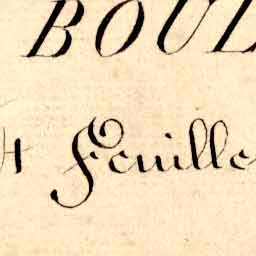 BOUL
4 Feuille